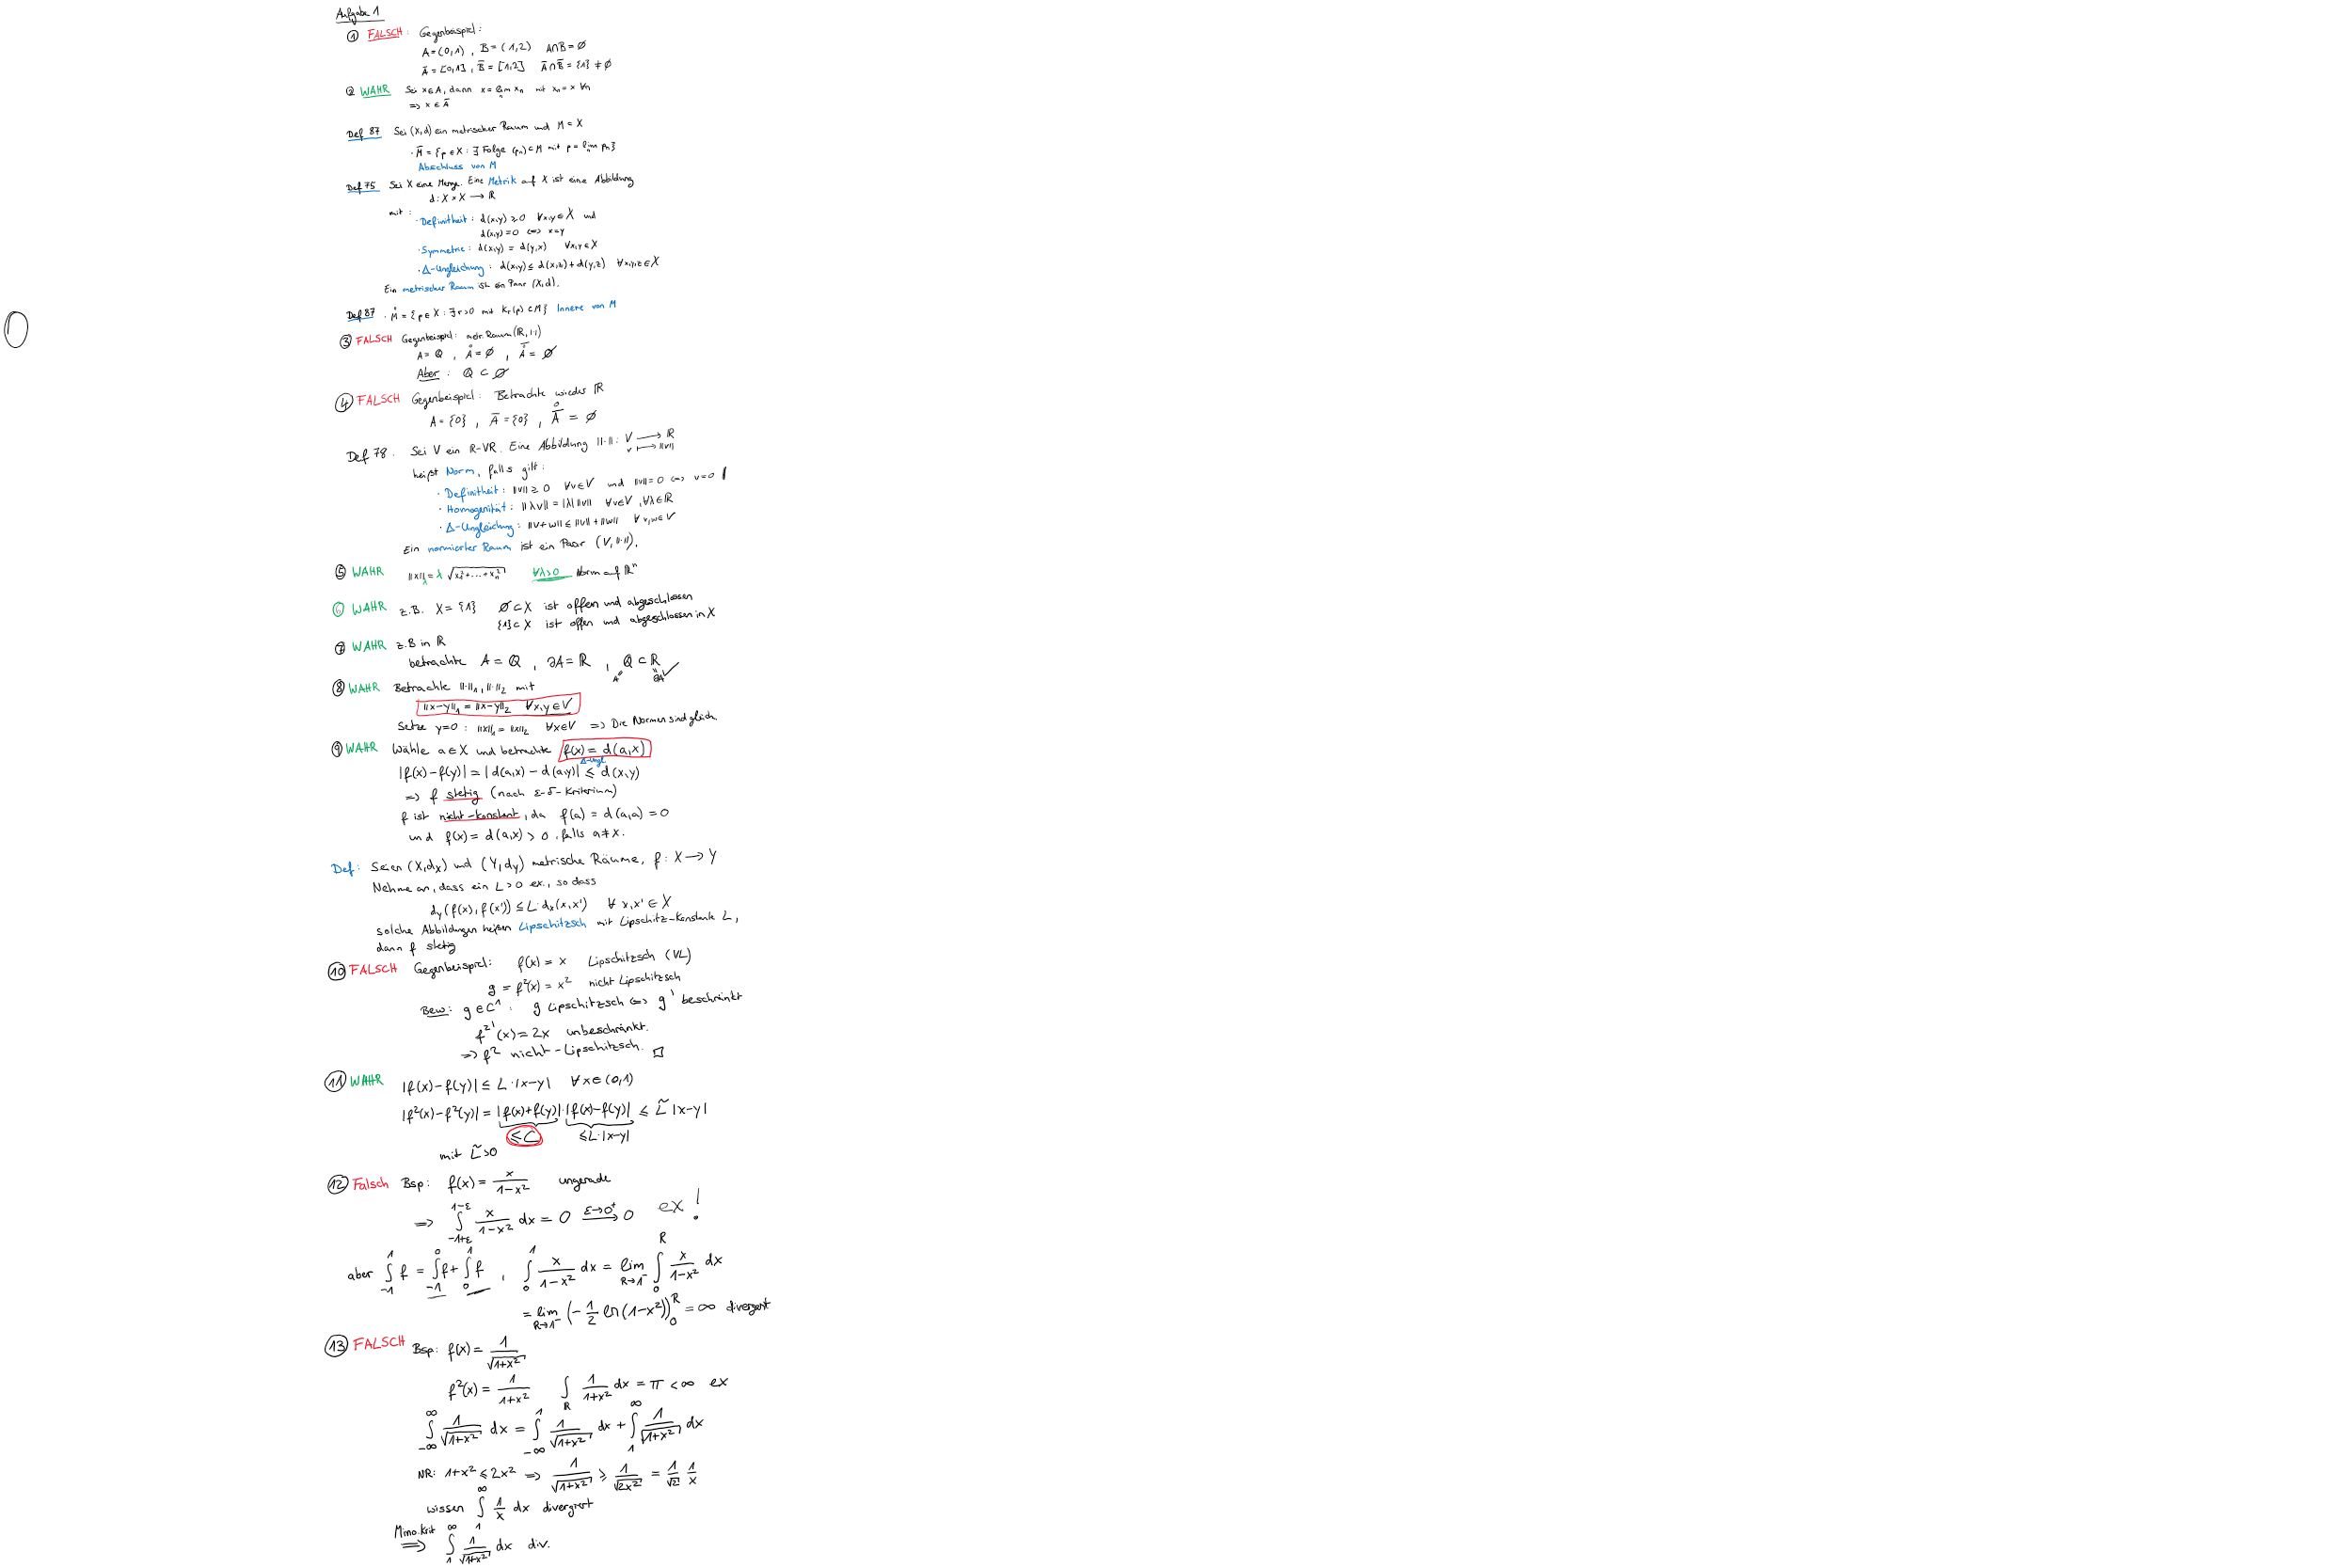 Aufgabe 1
① FALSCH: Gegenbeispiel:
A=(0,1), B=(1,2) A∩B=∅
A̅=[0,1], B̅=[1,2] A̅∩B̅={1}≠∅
② WAHR Sei x∈A, dann x=lim_n x_n mit x_n=x ∀n
=> x∈A̅
Def 87 Sei (X,d) ein metrischer Raum und M=X
· M̅={p∈X: ∃ Folge (p_n)⊂M mit p=lim_n p_n}
Abschluss von M
Def 75 Sei X eine Menge. Eine Metrik auf X ist eine Abbildung
d: X×X → ℝ
mit:
· Definitheit: d(x,y)≥0 ∀x,y∈X und
d(x,y)=0 <=> x=y
· Symmetrie: d(x,y)=d(y,x) ∀x,y∈X
· Δ-Ungleichung: d(x,y)≤d(x,z)+d(y,z) ∀x,y,z∈X
Ein metrischer Raum ist ein Paar (X,d).
Def 87 · M̊={p∈X: ∃r>0 mit K_r(p)⊂M} Innere von M
0
③ FALSCH Gegenbeispiel: metr. Raum (ℝ,|·|)
A=ℚ, Å=∅, Å̅=∅
Aber: ℚ⊂∅
④ FALSCH Gegenbeispiel: Betrachte wieder ℝ
A={0}, A̅={0}, A̅̊=∅
Def 78. Sei V ein ℝ-VR. Eine Abbildung ||·||: V → ℝ
v ↦ ||v||
heißt Norm, falls gilt:
· Definitheit: ||v||≥0 ∀v∈V und ||v||=0 <=> v=0
· Homogenität: ||λv||=|λ| ||v|| ∀v∈V, ∀λ∈ℝ
· Δ-Ungleichung: ||v+w||≤||v||+||w|| ∀v,w∈V
Ein normierter Raum ist ein Paar (V,||·||).
⑤ WAHR ||x||_λ=λ√(x_1²+...+x_n²) ∀λ>0 Norm auf ℝⁿ
⑥ WAHR z.B. X={1} ∅⊂X ist offen und abgeschlossen
{1}⊂X ist offen und abgeschlossen in X
⑦ WAHR z.B in ℝ
betrachte A=ℚ, ∂A=ℝ, ℚ⊂ℝ ✓
A" "∂A
⑧ WAHR Betrachte ||·||_1, ||·||_2 mit
||x-y||_1=||x-y||_2 ∀x,y∈V
Setze y=0: ||x||_1=||x||_2 ∀x∈V => Die Normen sind gleich.
⑨ WAHR Wähle a∈X und betrachte f(x)=d(a,x)
Δ-Ungl
|f(x)-f(y)|=|d(a,x)-d(a,y)|≤d(x,y)
=> f stetig (nach ε-δ-Kriterium)
f ist nicht-konstant, da f(a)=d(a,a)=0
und f(x)=d(a,x)>0, falls a≠x.
Def: Seien (X,d_X) und (Y,d_Y) metrische Räume, f: X→Y
Nehme an, dass ein L>0 ex., so dass
d_Y(f(x),f(x'))≤L·d_X(x,x') ∀x,x'∈X
solche Abbildungen heißen Lipschitzsch mit Lipschitz-Konstante L,
dann f stetig
⑩ FALSCH Gegenbeispiel: f(x)=x Lipschitzsch (VL)
g=f²(x)=x² nicht Lipschitzsch
Bew: g∈C¹: g Lipschitzsch <=> g' beschränkt
f²'(x)=2x unbeschränkt.
=> f² nicht-Lipschitzsch. □
⑪ WAHR |f(x)-f(y)|≤L·|x-y| ∀x∈(0,1)
|f²(x)-f²(y)|=|f(x)+f(y)|·|f(x)-f(y)|≤L̃|x-y|
≤C ≤L·|x-y|
mit L̃>0
⑫ Falsch Bsp: f(x)=x/(1-x²) ungerade
=> ∫_{-1+ε}^{1-ε} x/(1-x²) dx=0 →^{ε→0⁺} 0 ex!
aber ∫_{-1}^{1} f=∫_{-1}^{0} f+∫_{0}^{1} f, ∫_{0}^{1} x/(1-x²) dx=lim_{R→1⁻} ∫_{0}^{R} x/(1-x²) dx
=lim_{R→1⁻} (-1/2 ln(1-x²))_0^R=∞ divergent
⑬ FALSCH Bsp: f(x)=1/√(1+x²)
f²(x)=1/(1+x²) ∫_ℝ 1/(1+x²) dx=π<∞ ex
∫_{-∞}^{∞} 1/√(1+x²) dx=∫_{-∞}^{1} 1/√(1+x²) dx+∫_{1}^{∞} 1/√(1+x²) dx
NR: 1+x²≤2x² => 1/√(1+x²)≥1/√(2x²)=1/√2 1/x
wissen ∫_{1}^{∞} 1/x dx divergiert
Mino.Krit => ∫_{1}^{∞} 1/√(1+x²) dx div.